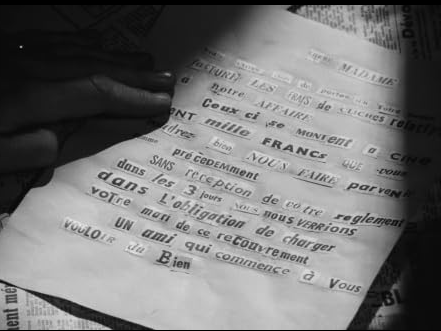 MADAME
FACTURE LES FRAIS de CLICHES relatifs
à notre AFFAIRE
Ceux ci se MONTENT à CINQ
ENT mille FRANCS QUE vous
drez bien NOUS FAIRE parvenir
précédemment
SANS réception de votre règlement
dans les 3 jours nous nous VERRIONS
dans L'obligation de charger
votre mari de ce recouvrement
UN ami qui commence à Vous
VOULOIR du Bien